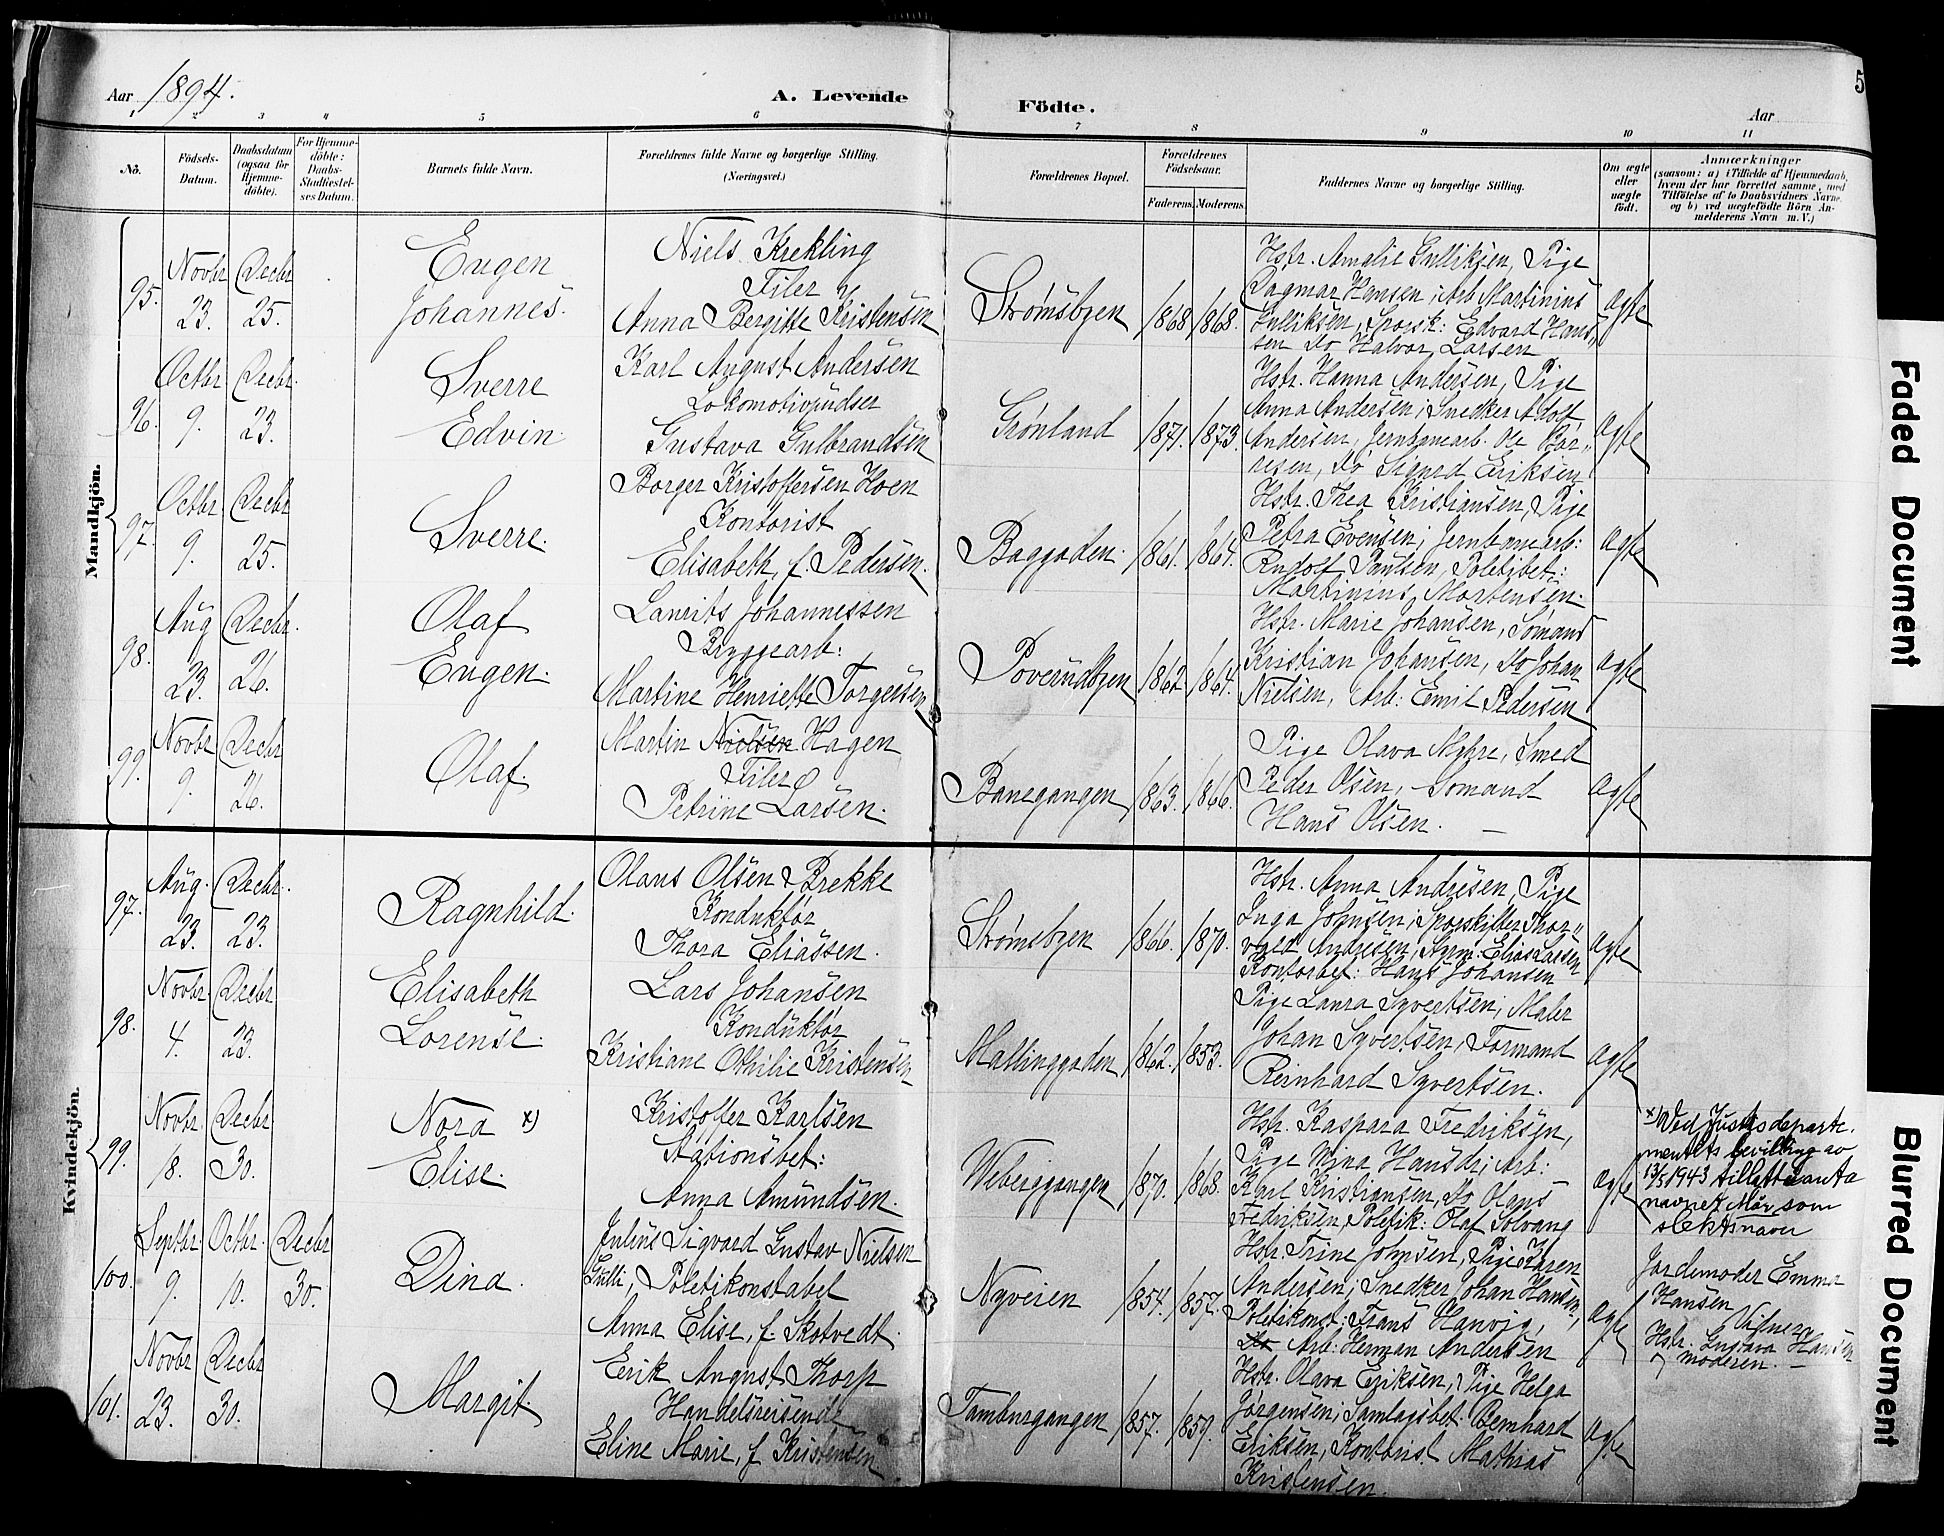 Aar 1894.
A. Levende
Födte.
Aar
5
1 2 3 4 5 6 7 8 9 10 11
No.
Födsels-
Datum.
Daabsdatum
(ogsaa för
Hjemme-
döbte).
For Hjemme-
döbte:
Daabs-
Stadfæstel-
ses Datum.
Barnets fulde Navn.
Forældrenes fulde Navne og borgerlige Stilling.
(Næringsvei.)
Forældrenes Bopæl.
Forældrenes
Födselsaar.
Faderens. Moderens.
Faddernes Navne og borgerlige Stilling.
Om ægte
eller
uægte
födt.
Anmærkninger
(saasom: a) i Tilfælde af Hjemmedaab,
hvem der har forrettet samme, med
Tilföielse af to Daabsvidners Navne.
og b) ved uægtefödte Börn An-
melderens Navn m. V.)
Mandkjön.
95.
Novbr
23.
Decbr
25.
Eugen
Johannes.
Niels Krekling
Filer
Anna Bergitte Kristensen
Strømsbyen
1868
1868.
Hstr. Amalie Gulliksen, Pige
Dagmar Hansen; Arb Martinius
Gulliksen, Sporsk: Edvard Hans„
sen Do Halvor Larsen
Ægte
96.
Octbr
9.
Decbr.
23.
Sverre
Edvin.
Karl August Andersen
Lokomotivpudser
Gustava Gulbrandsen
Grønland
1871.
1873.
Hstr. Hanna Andersen, Pige
Anna Andersen; Snedker Adolf
Andersen, Jernbanearb. Ole Bør„
resen, Do Sigurd Eriksen
Ægte
97.
Octbr
9.
Decbr
25.
Sverre.
Borger Kristoffersen Hoen
Kontorist
Elisabeth, f. Pedersen.
Baggaden.
1861.
1864.
Hstr. Thea Kristiansen, Pige
Petra Evensen; Jernbanearb:
Rudolf Paulsen, Politibet:
Martinius Mortensen.
Ægte
98.
Aug
23.
Decbr.
26.
Olaf
Eugen.
Laurits Johannessen
Bryggearb:
Martine Henriette Torgersen
Poverudbyen
1862
1864.
Hstr. Marie Johansen, Sømand
Kristian Johansen, Do Johan
Nielsen, Arb: Emil Pedersen
Ægte
99.
Novbr
9.
Decbr
26.
Olaf.
Martin Nielsen Hagen
Filer
Petrine Larsen.
Banegangen
1863.
1866.
Pige Olava Myhre, Smed
Peder Olsen, Sømand
Hans Olsen. —
Ægte
Kvindekjön.
97.
Aug.
23.
Decbr.
23.
Ragnhild.
Olaus Olsen Brekke
Konduktør
Thora Eliassen.
Strømsbyen
1866.
1870.
Hstr. Anna Andresen, Pige
Inga Johnsen; Sporskifter Thor„
vald Andresen, Elias Larsen
Kontorbet: Hans Johansen
Ægte
98.
Novbr
4.
Decbr
23.
Elisabeth
Lorense.
Lars Johansen
Konduktør
Kristiane Othilie Kristensen
Mallinggaden
1862.
1853.
Pige Laura Syvertsen; Maler
Johan Syvertsen, Formand
Reinhard Syvertsen.
Ægte
99.
Novbr.
18.
Decbr
30.
Nora x)
Elise.
Kristoffer Karlsen
Stationsbet:
Anna Amundsen.
Weberggangen
1870.
1868.
Hstr. Kaspara Fredriksen,
Pige Nina Hansdr; Arb:
Karl Kristiansen, Do Olaus
Fredriksen, Politik: Olaf Solvang
Ægte
x) Ved Justisdeparte-
mentets bevilling av
13/5 1943 tillatt å anta
navnet Mår som
slektsnavn
100.
Septbr.
9.
Octbr.
10.
Decbr
30.
Dina.
Julius Sigvard Gustav Nielsen
Gulli, Politikonstabel
Anna Elise, f. Skotvedt.
Nyveien
1854.
1857.
Hstr. Trine Johnsen, Pige Karen
Andersen; Snedker Johan Hansen,
Politikonst: Frans Hanvig,
Do Arb: Herman Andersen
Ægte
Jordemoder Emma
Hansen
Vidner
Hstr. Gustava Hansen
moderen. —
101.
Novbr
23.
Decbr
30.
Margit.
Erik August Thorp
Handelsreisende
Eline Marie, f Kristensen
Tamburgangen
1857.
1859.
Hstr. Olava Eriksen, Pige Helga
Jørgensen; Samlagsbet. Bernhard
Eriksen, Kontorist Mathias
Kristensen.
Ægte
Faded Document
Blurred Document